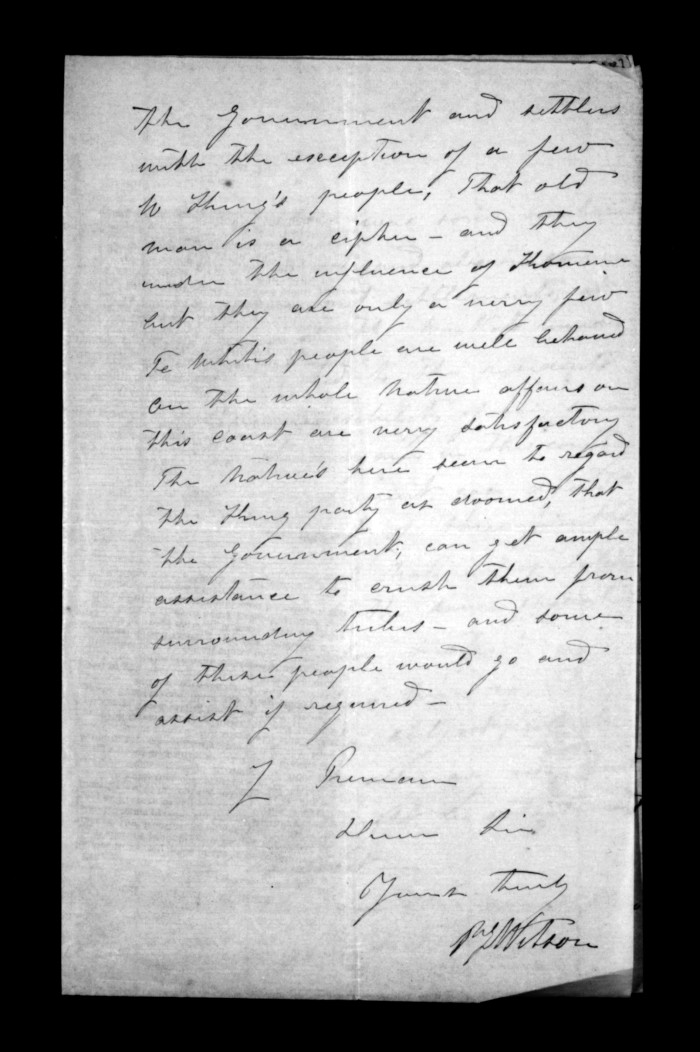 the Government and settlers
with the exception of a few
W King's people, That old
man is a cipher – and they
under the influence of Komene
but they are only a very few
Te Whiti's people are well behaved
On the whole Native affairs on
this coast are very satisfactory
The Native's here seem to regard
the King party as doomed, that
the Government, can get ample
assistance to crush them from
surrounding tribes – and some
of these people would go and
assist if required –
I Remain
Dear Sir
Yours truly
Wilson